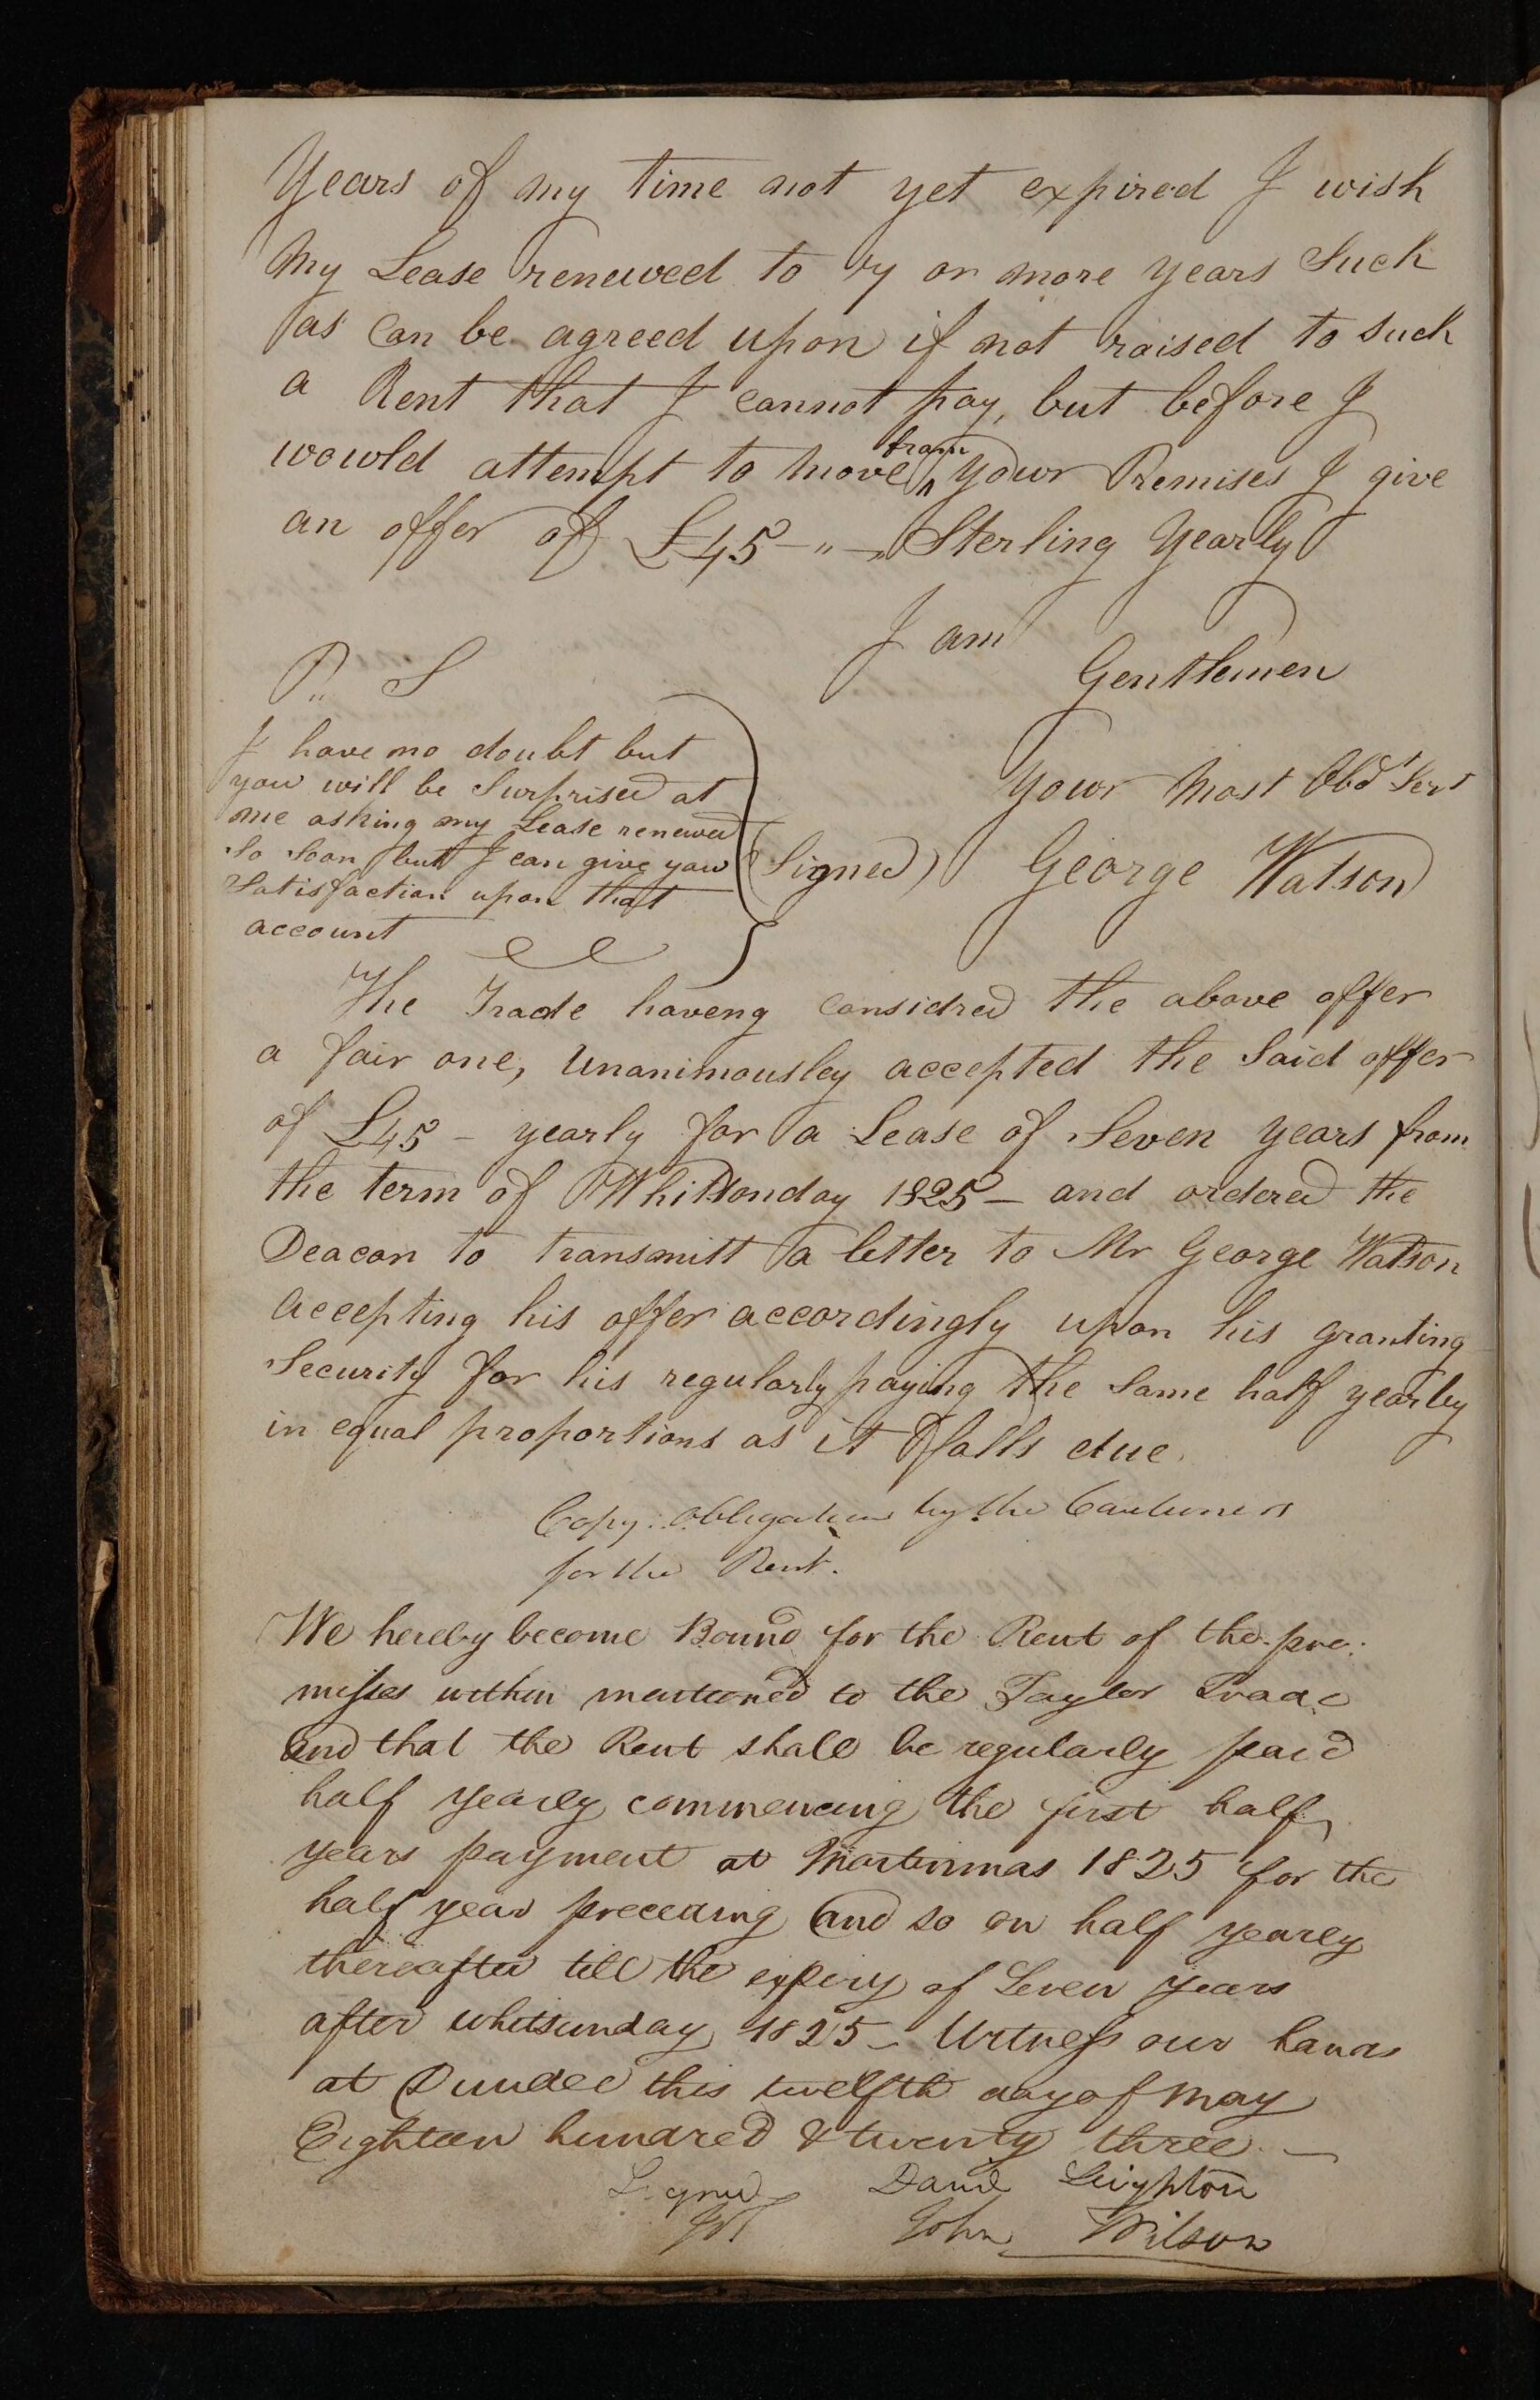 Years of my time not yet expired I wish
my Lease renewed to 7 or more years Such
as Can be agreed upon if not raised to such
a Rent that I cannot pay, but before I
wowld attempt to move from yowr Premises I give
an offer of £45 - " - " Sterling Yearly
I am
Gentlemen
Yowr Most Obdt Sert
(Signed) George Watson
P.. S
I have no doubt but
yow will be Surprised at
me asking my Lease renewed
So Soon but I can give yow
Satisfaction upon that
account
The Trade haveng considred the above offer
a fair one, Unanimousley accepted the Said offer
of £45 - yearly for a Lease of Seven years from
the term of Whitsonday 1825 - and ordered the
Deacon to transmitt a letter to Mr George Watson
Accepting his offer accordingly upon his granting
Security for his regularly paying the Same half yearley
in equal proportions as it falls due.
Copy. Obligation by the Cautioners
for the Rent.
We hereby become Bound for the Rent of the pre:
misses within mentioned to the Taylor Trade
and that the Rent shall be regularly paid
half yearly commencing the first half
years payment at Martinmas 1825 for the
half year preceding and so on half yearly
thereafter till the expiry of Seven years
after whitsunday 1825 - Witness our hands
at Dundee this twelfth day of May
Eighteen hundred & twenty three. -
Signed David Leighton
John Wilson